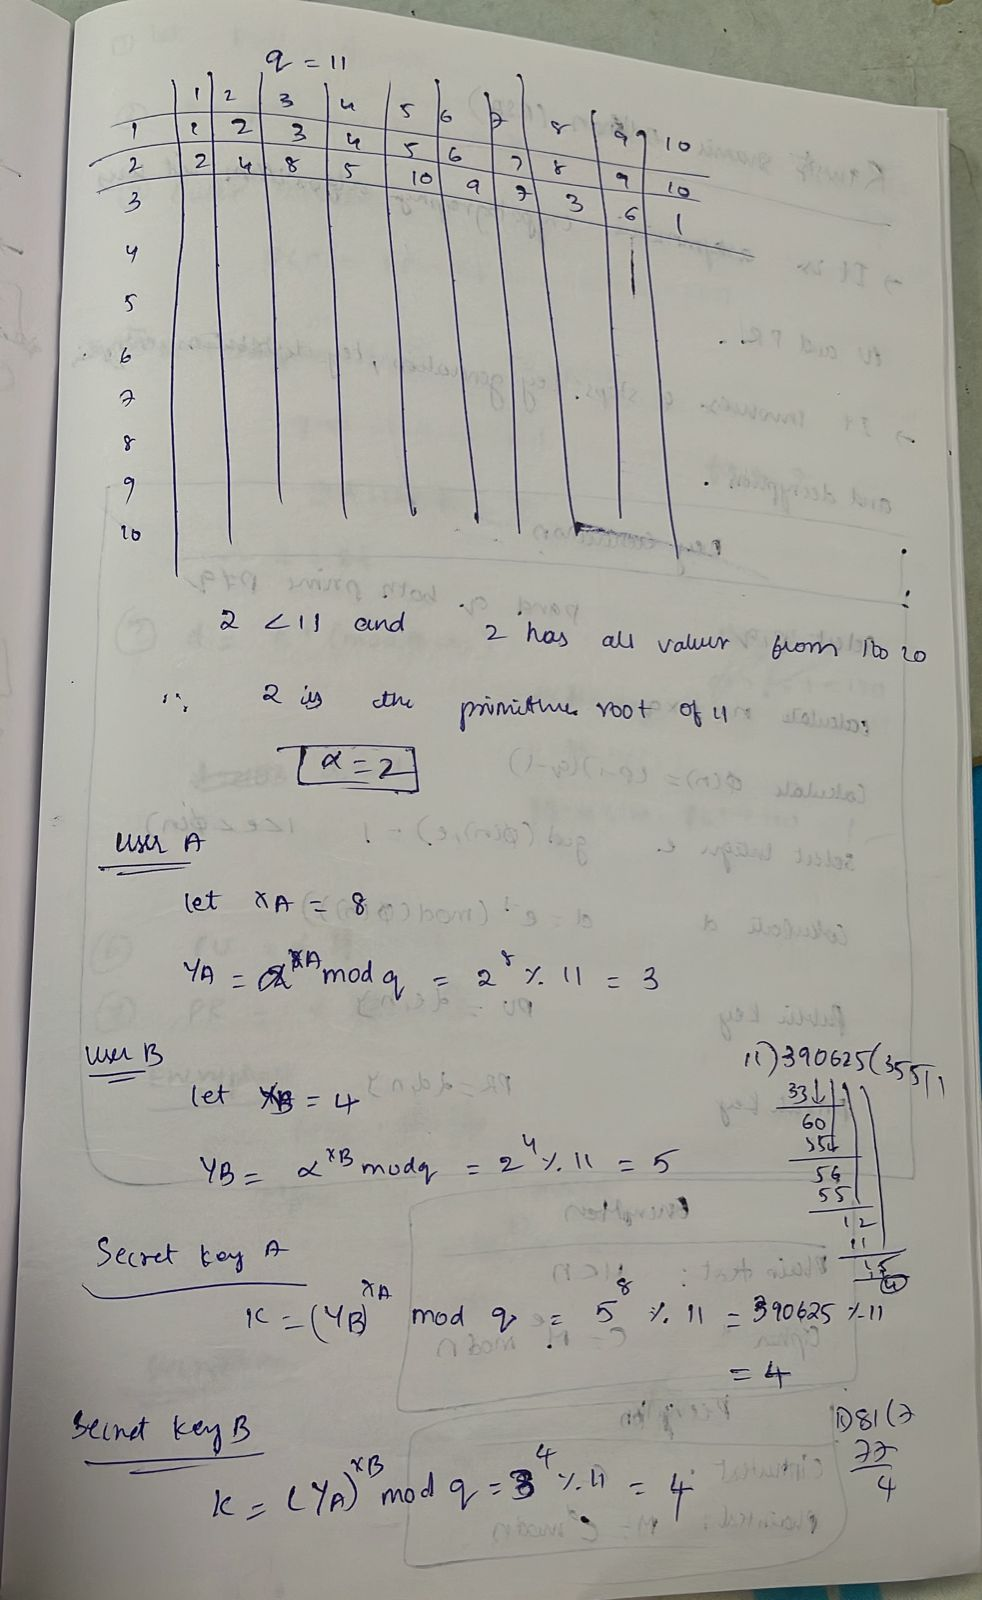 q = 11
1 2 3 4 5 6 7 8 9 10
1 1 2 3 4 5 6 7 8 9 10
2 2 4 8 5 10 9 7 3 6 1
3
4
5
6
7
8
9
10
2 < 11 and 2 has all values from 1 to 10
∴ 2 is the primitive root of 11
α = 2
User A
let XA = 8
YA = α^XA mod q = 2^8 % 11 = 3
User B
let XB = 4
YB = α^XB mod q = 2^4 % 11 = 5
11)390625(35511
33
60
55
56
55
12
11
15
4
Secret key A
K = (YB)^XA mod q = 5^8 % 11 = 390625 % 11
= 4
Secret key B
K = (YA)^XB mod q = 3^4 % 11 = 4
11)81(7
77
4